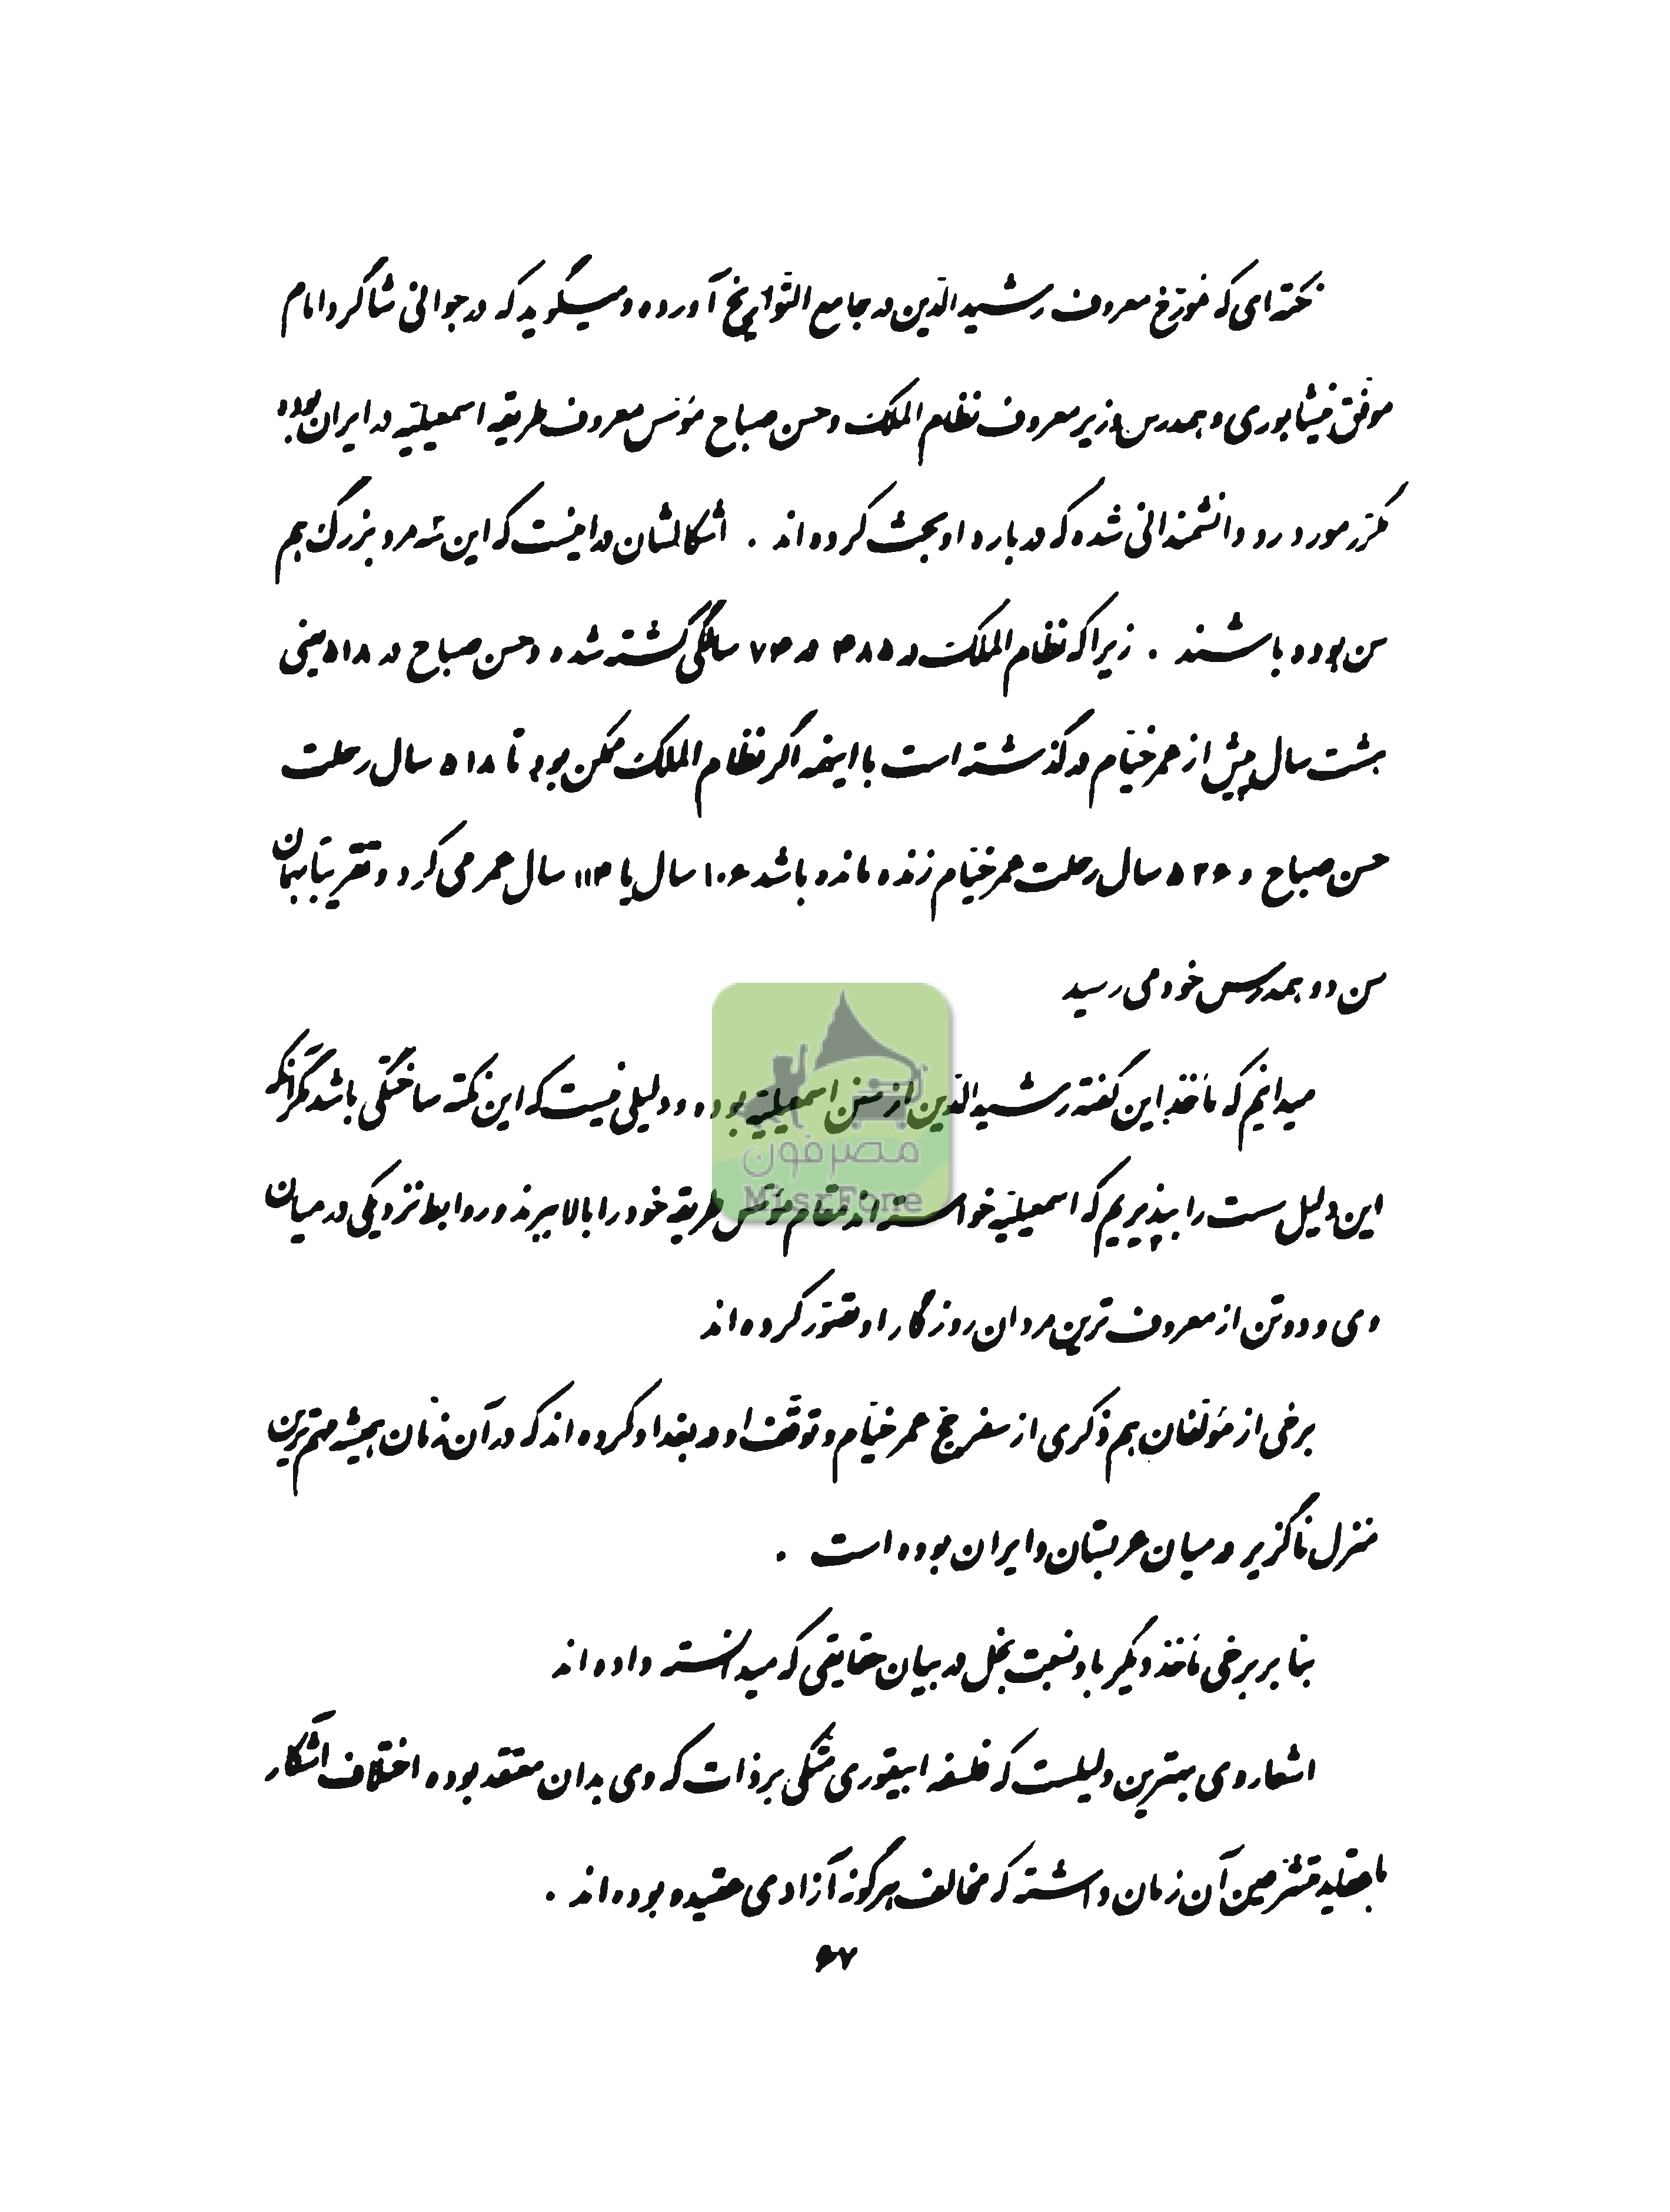 نکته‌ای که مورّخ معروف رشید الدّین در جامع التّواریخ آورده و میگوید که در جوانی شاگرد امام
موفّق نیشابوری و همدرس وزیر معروف نظام الملک و حسن صباح مؤسّس معروف طریقه اسمعیلیّه در ایران بوده
مکرّر مورد رد دانشمندانی شده که درباره او بحث کرده‌اند . اشکالشان در اینست که این سه مرد بزرگ هم
سن بوده باشند . زیرا که نظام الملک در ۴۸۵ در ۷۴ سالگی کشته شده و حسن صباح در ۵۱۸ یعنی
هشت سال پیش از عمر خیّام در گذشته است با اینهمه اگر نظام الملک ممکن بود تا ۵۱۸ سال رحلت
حسن صباح و ۵۲۶ سال رحلت عمر خیّام زنده مانده باشد ۱۰۶ سال یا ۱۱۴ سال عمر می کرد و تقریباً بهمان
سن دو همدرس خود می رسید
میدانیم که مأخذ این گفته رشید الدّین از سنن اسمعیلیّه بوده و دلیلی نیست که این نکته ساختگی باشد مگر آنکه
این دلیل سست را بپذیریم که اسمعیلیّه خواسته اند مقام مؤسّس طریقه خود را بالا ببرند و روابط نزدیکی در میان
وی و دو تن از معروف ترین مردان روزگار او تصوّر کرده‌اند
برخی از مؤلّفان هم ذکری از سفر حجّ عمر خیّام و توقّف او در بغداد کرده‌اند که در آن زمان همیشه مهم ترین
منزل ناگزیر در میان عربستان و ایران بوده است .
بنا بر برخی مآخذ دیگر باو نسبت بخل در بیان حقایقی که میدانسته داده اند
اشعار وی بهترین دلیلست که فلسفه ابیقوری متّکی بر ذات که وی بدان معتقد بوده اختلاف آشکار
با عقاید متشرّعین آن زمان داشته که مخالف هر گونه آزادی عقیده بوده‌اند .
۶۷
مصرفون
MisrFone